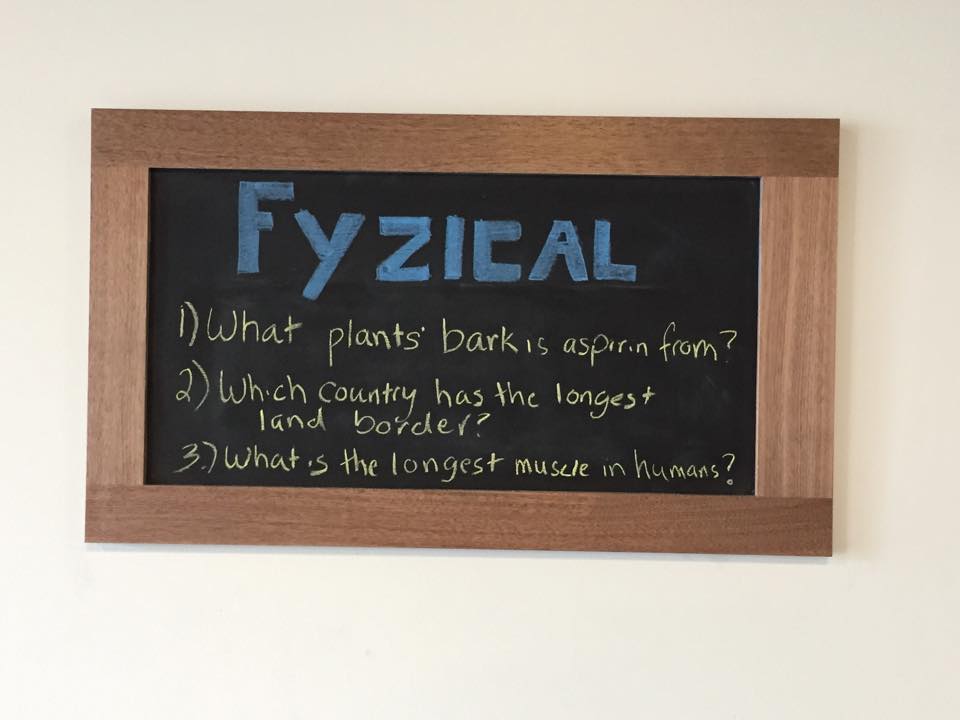 FyZICAL
1) What plants' bark is aspirin from?
2) Which country has the longest
land border?
3.) What is the longest muscle in humans?